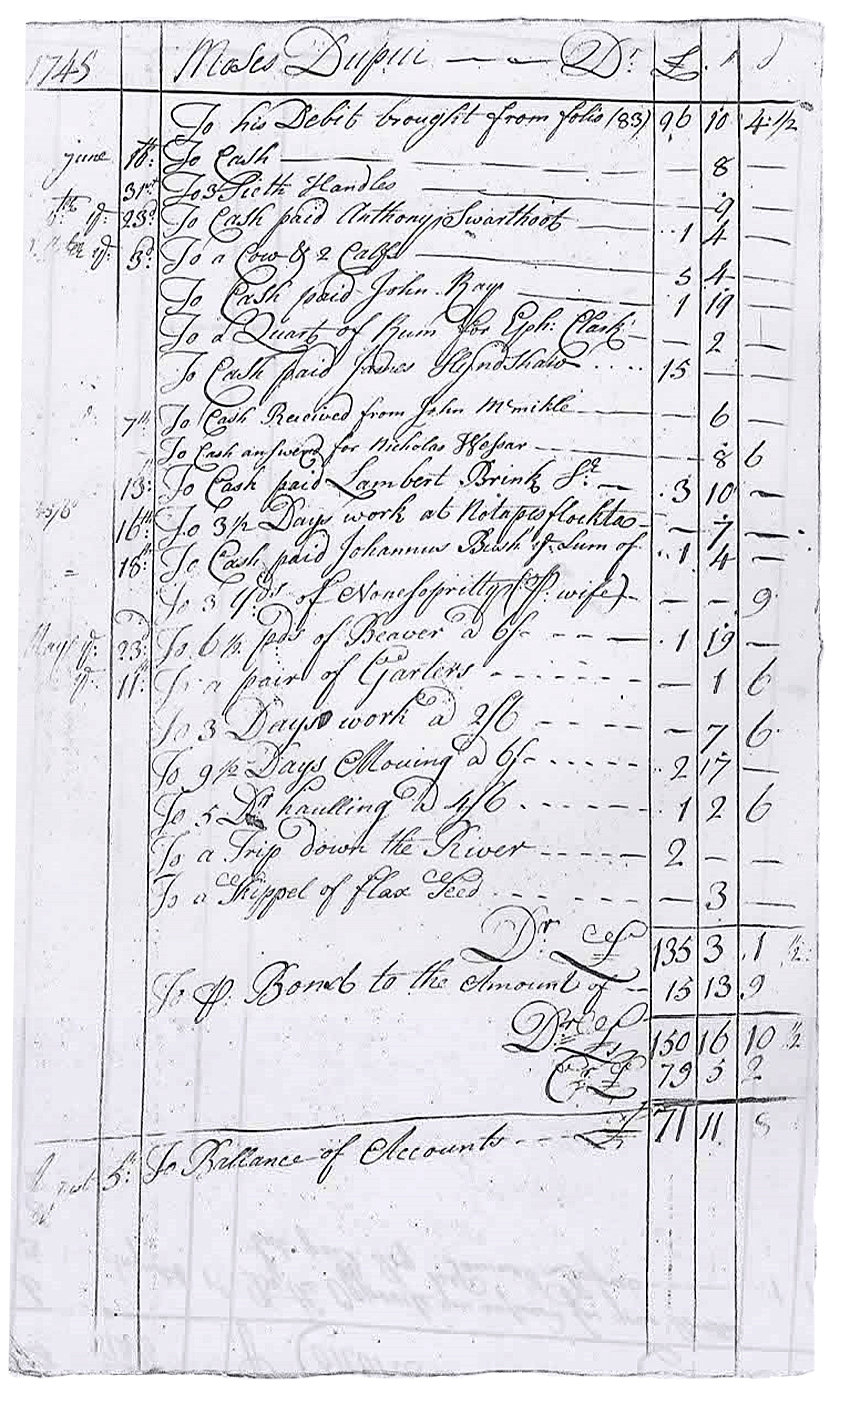 1745 Moses Dupui — — Dr £ s d
To his Debit brought from folio (83) 96 10 4 1/2
june 18th: To Cash — 8 —
31st To 3 Sieth Handles — 9 —
ye: 23d To Cash paid Anthony Swarthoot — 1 4 —
ye: 3d To a Cow & 2 Calfs — 5 4 —
To Cash paid John Rays — 1 19 —
To a Quart of Rum for Eph: Clark — — 2 —
To Cash paid James Hyndshaw .... 15 — —
7th To Cash Received from John Mcmikle — — 6 —
To Cash answered for Nicholas Wessar — — 8 6
13th: To Cash paid Lambert Brink — 3 10 —
16th: To 3 1/2 Days work at — 7 —
18th: To Cash paid Johannus Bush ye Sum of 1 4 —
To 3 yds of Nonesopritty (pr. wife) — — — 9
May ye: 23d To 6 1/2 pds of Beaver a 6/- — — — 1 19 —
ye: 11th: To a pair of Garters - - - — 1 6
To 3 Days work a 2/6 - - - — 7 6
To 9 1/2 Days Mowing a 6/- - - - 2 17 —
To 5 Dr haulling a 4/6 - - - - 1 2 6
To a Trip down the River - - - - 2 — —
To a Skippel of flax Seed - - - - — 3 —
Dr £ 135 3 1 1/2
To pr. Bond to the Amount of — 15 13 9
Dr £ 150 16 10 1/2
Cr £ 79 5 2
£ 71 11 8
5th: To Ballance of Accounts - - -